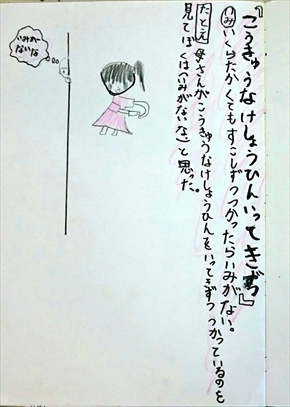 『こうきゅうなけしょうひんいってきずつ』
いみ いくらたかくてもすこしずつつかったらいみがない。
たとえ 母さんがこうきゅうなけしょうひんをいってきずつつかっているのを
見てぼくは(いみがないな)と思った。
いみが
ないな